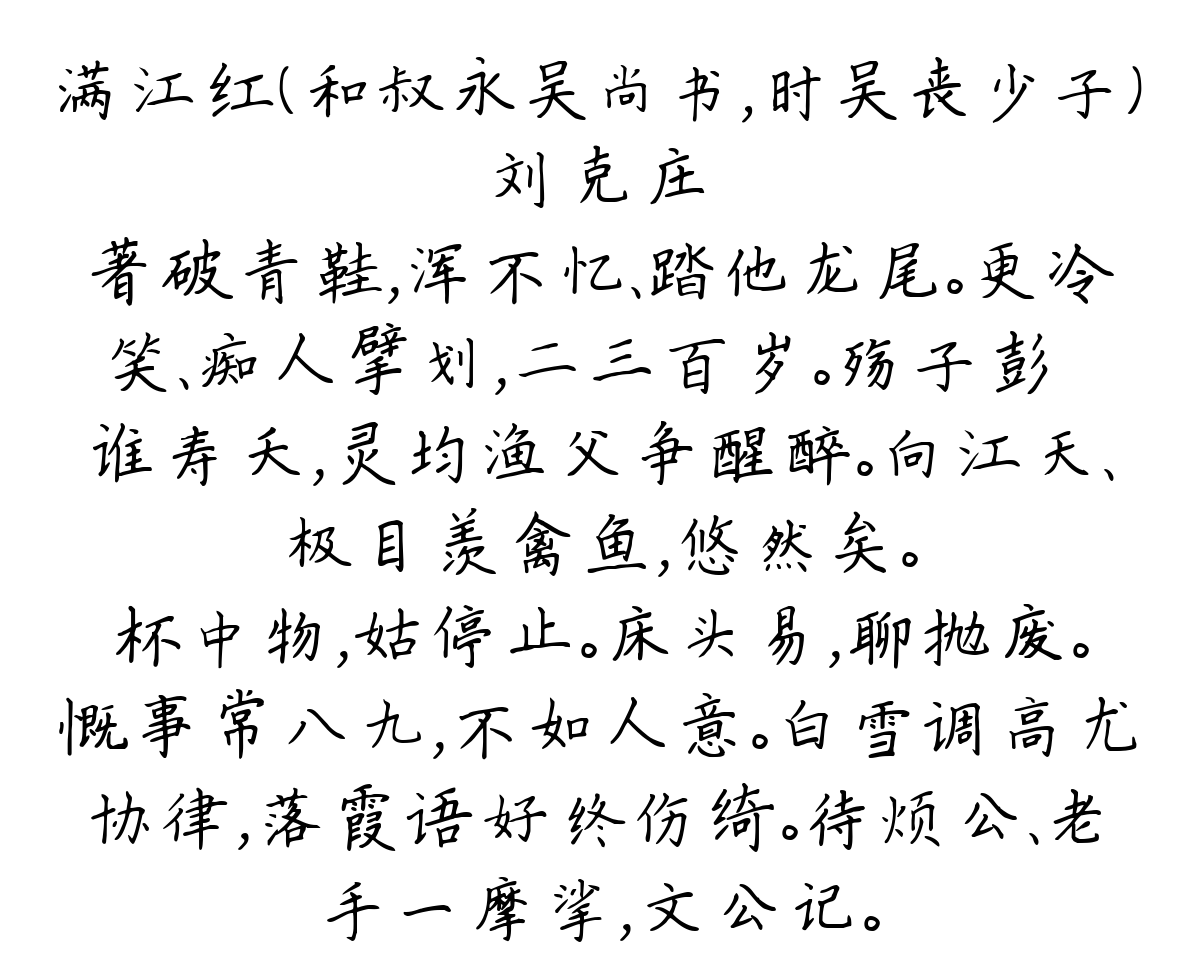 满江红(和叔永吴尚书,时吴丧少子)
刘克庄
著破青鞋,浑不忆、踏他龙尾。更冷
笑、痴人擘划,二三百岁。殇子彭
谁寿夭,灵均渔父争醒醉。向江天、
极目羡禽鱼,悠然矣。
杯中物,姑停止。床头易,聊抛废。
慨事常八九,不如人意。白雪调高尤
协律,落霞语好终伤绮。待烦公、老
手一摩挲,文公记。